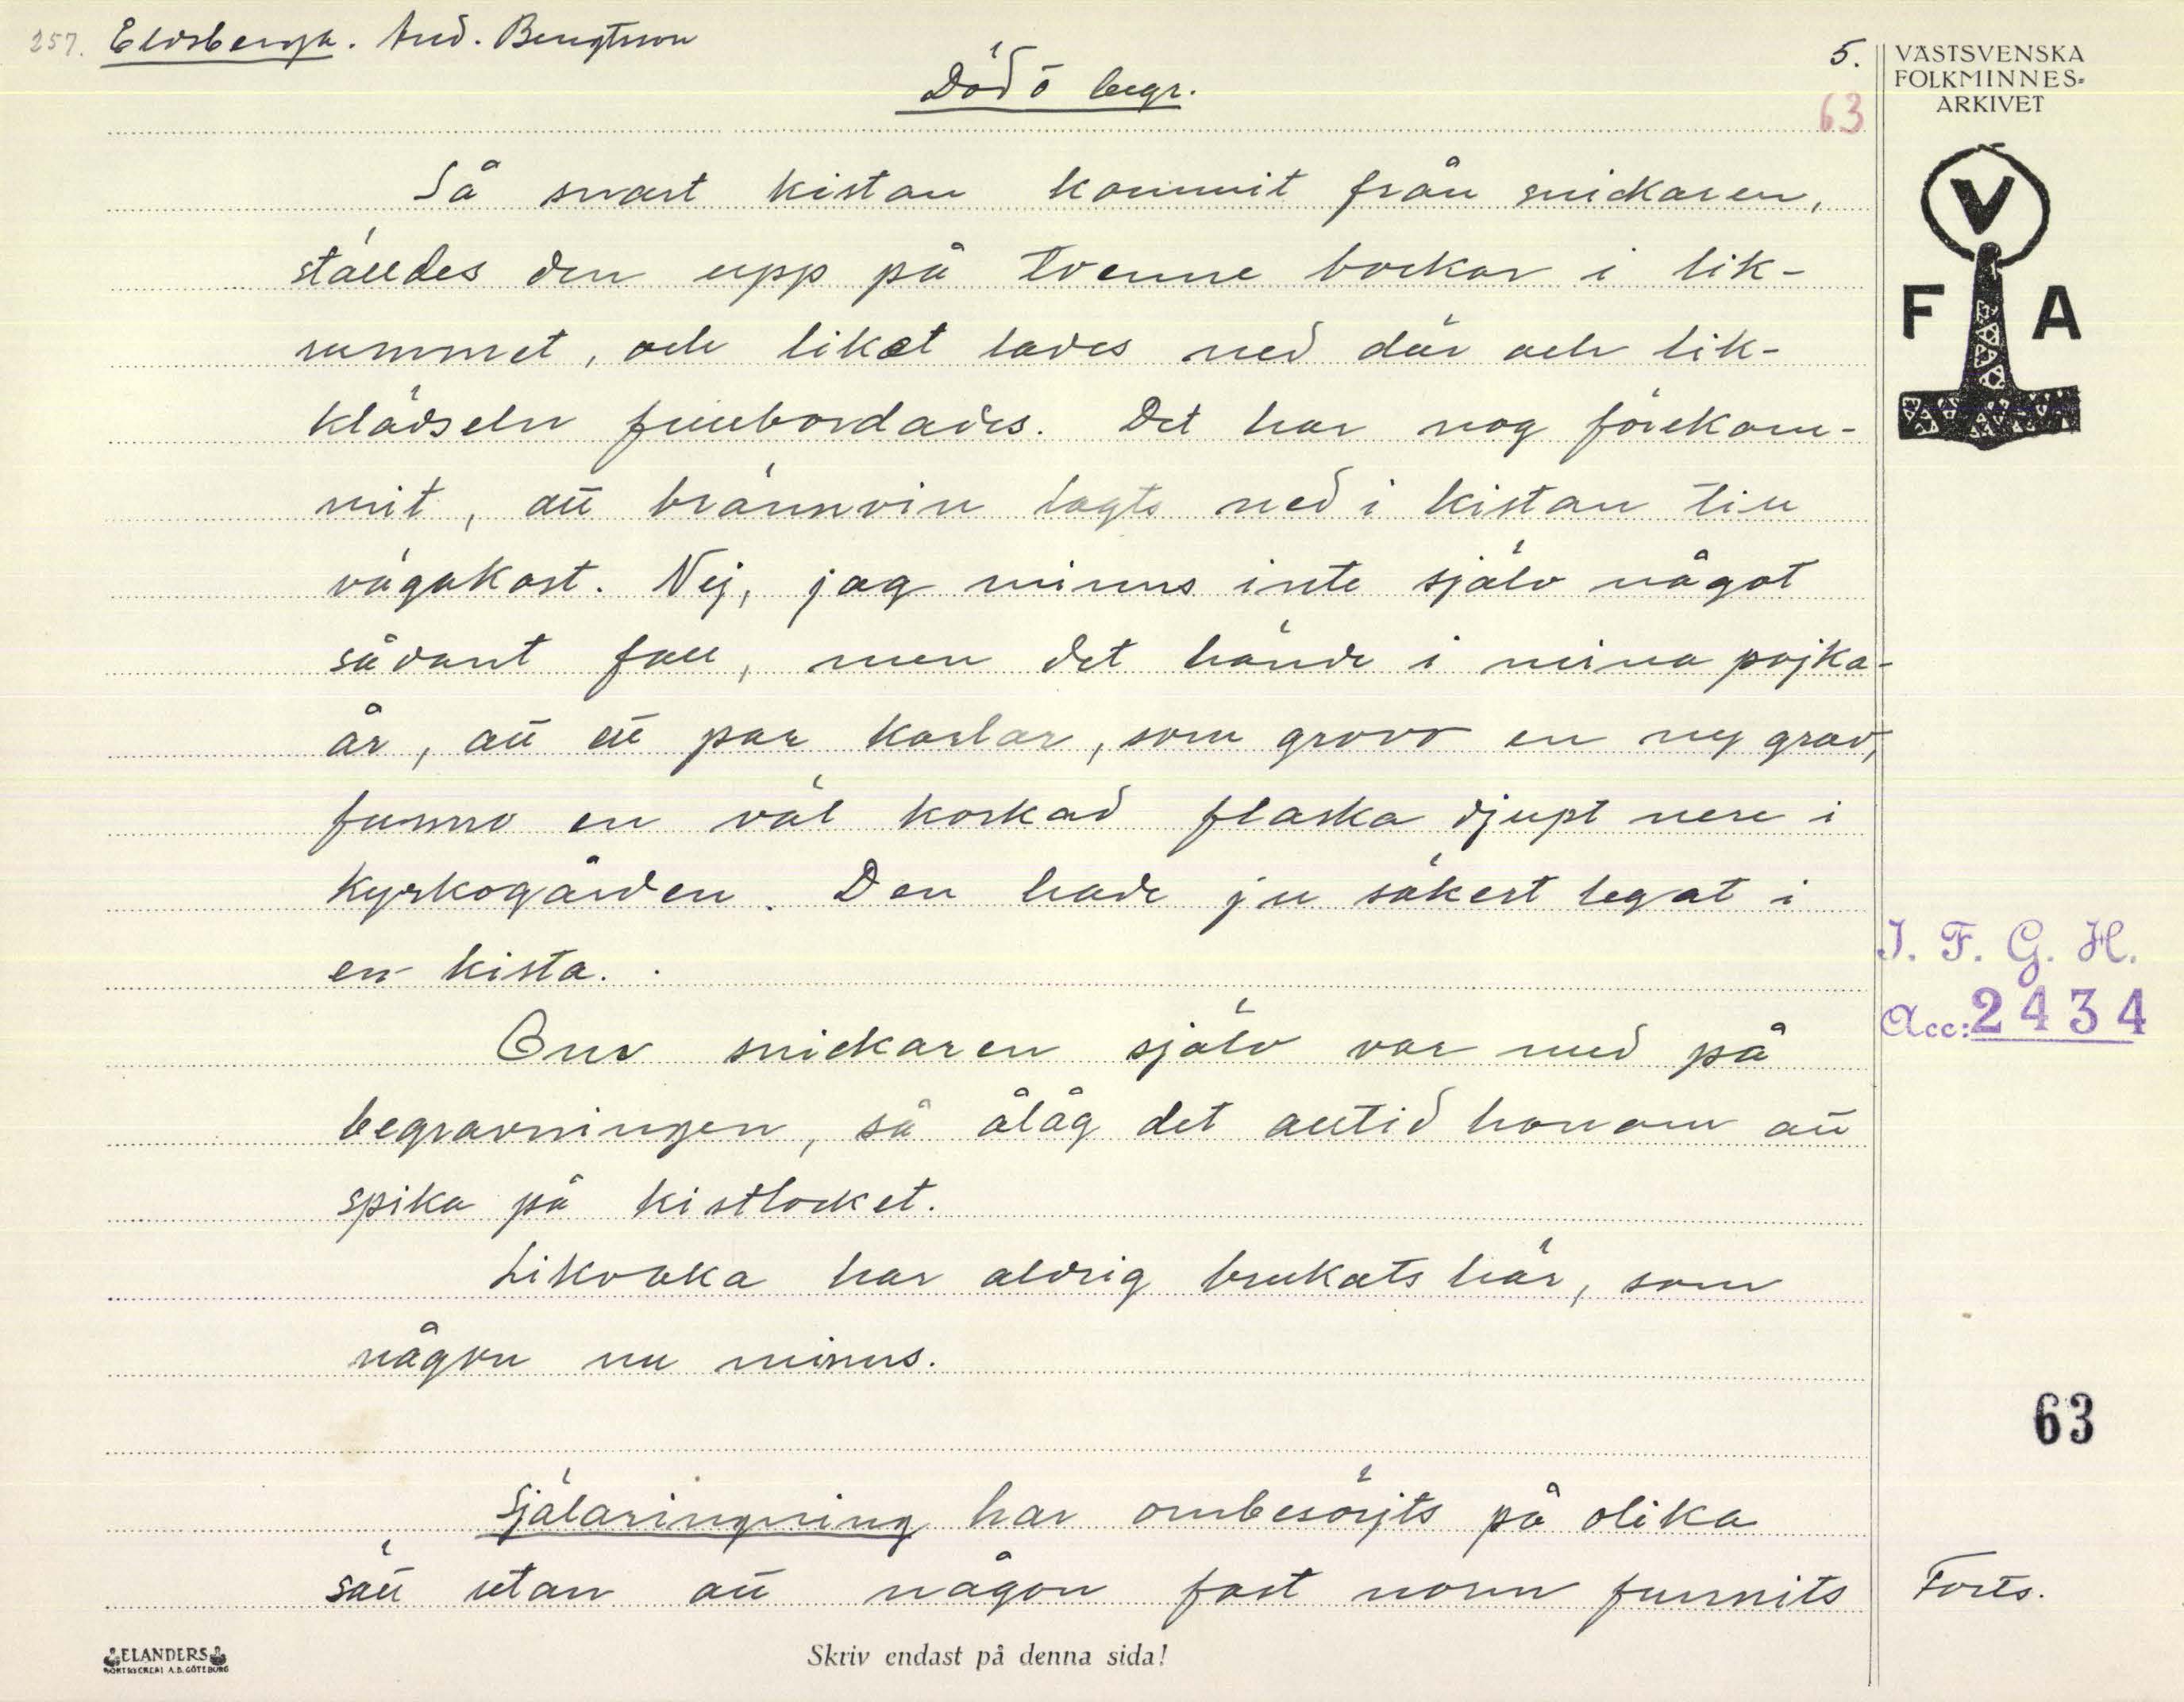 257. Eldsberga. And. Bengtsson
Död o begr.
5.
63
VÄSTSVENSKA
FOLKMINNES=
ARKIVET
V
F A
Så snart kistan kommit från snickaren,
ställdes den upp på tvenne bockar i lik-
rummet, och liket lades ned där och lik-
klädseln fullbordades. Det har nog förekom-
mit, att brännvin lagts ned i kistan till
vägakost. Nej, jag minns inte själv något
sådant fall, men det hände i mina pojka-
år, att ett par karlar, som grovo en ny grav,
funno en väl korkad flaska djupt nere i
kyrkogården. Den hade ju säkert legat i
en kista.
Om snickaren själv var med på
begravningen, så ålåg det alltid honom att
spika på kistlocket.
Likvaka har aldrig brukats här, som
någon nu minns.
Själaringning har ombesörjts på olika
sätt utan att någon fast norm funnits
I. F. G. H.
Acc: 2434
63
Forts.
ELANDERS
BOKTRYCKERI A.B. GÖTEBORG
Skriv endast på denna sida!